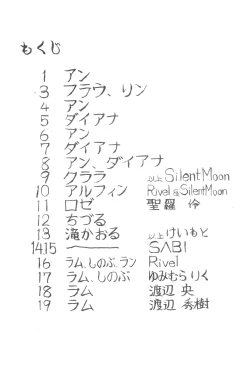 もくじ
1 アン
3 フラウ、リン
4 アン
5 ダイアナ
6 アン
7 ダイアナ
8 アン、ダイアナ
9 クララ 以上SilentMoon
10 アルフィン Rivel &SilentMoon
11 ロゼ 聖羅 伶
12 ちづる
13 滝かおる 以上けいもと
14.15 〜 SABI
16 ラム、しのぶ、ラン Rivel
17 ラム、しのぶ ゆみむらりく
18 ラム 渡辺 央
19 ラム 渡辺 秀樹